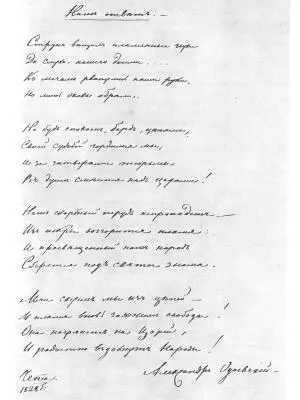 Нашъ отвѣтъ.—
Струнъ вѣщихъ пламенные звуки
До слуха нашего дошли....
Къ мечамъ рванулись наши руки,
Но лишь оковы обрѣли.
Но будь спокоенъ, бардъ, цѣпями,
Своей судьбой гордимся мы,
И за затворами тюрьмы
Въ душѣ смѣемся надъ царями!
Нашъ скорбный трудъ не пропадетъ—
Изъ искры возгорится пламя:
И просвѣщенный нашъ народъ
Сберется подъ святое знамя.
Мечи скуемъ мы изъ цѣпей —
И пламя вновь зажжемъ свободы!
Она нагрянетъ на Царей,
И радостно вздохнутъ Народы!
Александръ Одоевскій.
Чита
1828 г.